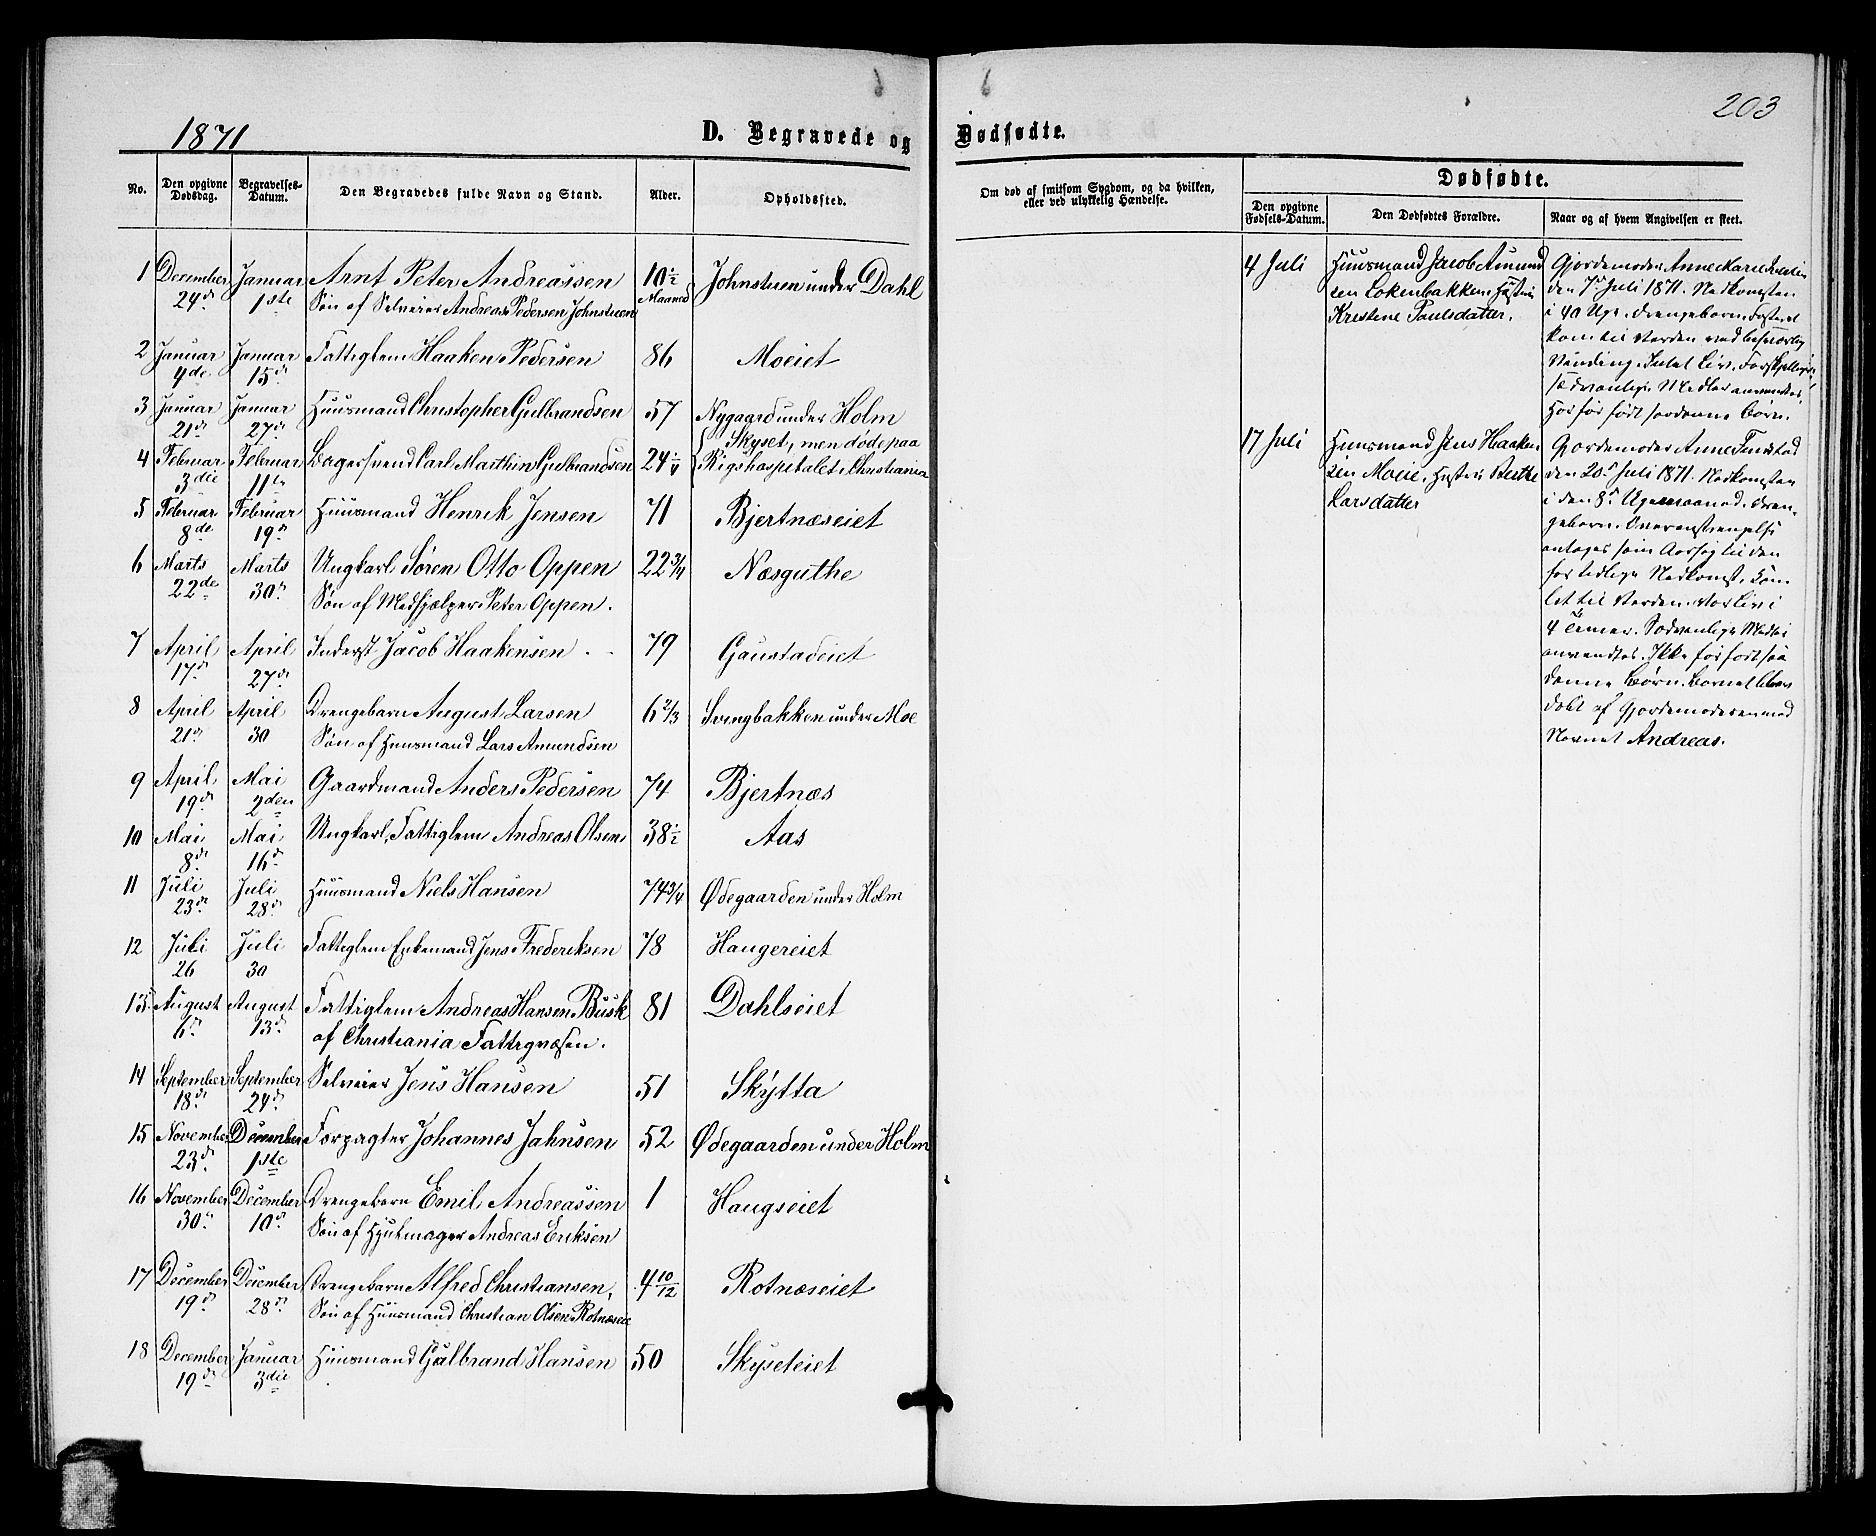 203
1871
D. Begravede og Dødfødte.
No.
Den opgivne Dødsdag.
Begravelses-Datum.
Den Begravedes fulde Navn og Stand.
Alder.
Opholdssted.
Om død af smitsom Sygdom, og da hvilken,
eller ved ulykkelig Hændelse.
Dødfødte.
Den opgivne Fødsels-Datum.
Den Dødfødtes Forældre.
Naar og af hvem Angivelsen er skeet.
1 December Januar Arnt Peter Andreassen 10 1/2 Johnstuen under Dahl
24de 1ste Søn af Selveier Andreas Pedersen Johnstuen Maaned
2 Januar Januar Fattiglem Haaken Pedersen 86 Moeiet
4de 15de
3 Januar Januar Huusmand Christopher Gulbrandsen 57 Nygaard under Holm
21de 27de Skyset, men døde paa
4 Februar Februar Bagersvend Carl Marthin Gulbrandsen 24 1/4 Rigshospitalet i Christiania
3die 11te
5 Februar Februar Huusmand Henrik Jensen 71 Bjertnæseiet
8de 19de
6 Marts Marts Ungkarl Søren Otto Oppen 22 3/4 Næsguthe
22de 30de Søn af Medhjælper Peter Oppen.
7 April April Inderst Jacob Haakensen 79 Gaustadeiet
17de 27de
8 April April Drengebarn August Larsen 6 2/3 Svingbakken under Moe
21de 30 Søn af Huusmand Lars Amundsen
9 April Mai Gaardmand Anders Pedersen 74 Bjertnæs
19de 2den
10 Mai Mai Ungkarl, Fattiglem Andreas Olsen 38 1/2 Aas
8de 16de
11 Juli Juli Huusmand Niels Hansen 74 3/4 Ødegaarden under Holm
23de 28de
12 Juli Juli Fattiglem Enkemand Jens Frederiksen 78 Haugereiet
26 30
13 August August Fattiglem Andreas Hansen Busk 81 Dahlseiet
6te 13de af Christiania Fattigvæsen.
14 September September Selveier Jens Hansen 51 Skytta
18de 24de
15 November December Forpagter Johannes Jahnsen 52 Ødegaarden under Holm
23de 1ste
16 November December Drengebarn Emil Andreassen 1 Haugseiet
30de 10de Søn af Hjulmager Andreas Eriksen
17 December December Drengebarn Alfred Christiansen, 4 10/12 Rotnæseiet
19de 28de Søn af Huusmand Christian Olsen Rotnæseie
18 December Januar Huusmand Gulbrand Hansen 50 Skyseteiet
19de 3die
4 Juli
Huusmand Jacob Amund
sen Løkenbakken Hustru
Kristine Paulsdatter.
Gjordemoder Anne Karie
den 7de Juli 1871. Nedkomsten
i 40 Uge. Drengebarn. Fosteret
kom til Verden ved besværlig
Vending. Intet Liv. Forskjellige
sædvanlige Midler anvendtes.
Har før født sordenne Børn.
17 Juli
Huusmand Jens Haaken
sen Moeie. Hustru Berthe
Larsdatter
Gjordemoder Anne
den 20de Juli 1871. Nedkomsten
i den 8de Ugemaaned. Dren-
gebarn. Overanstrengelse
antages som Aarsag til den
for tidlige Nedkomst. Kom
let til Verden. Var Liv i
4 Timer. Sædvanlige Midler
anvendtes. Ikke før født saa
danne Børn. Barnet blev
døbt af Gjordemoderen med
Navnet Andreas.